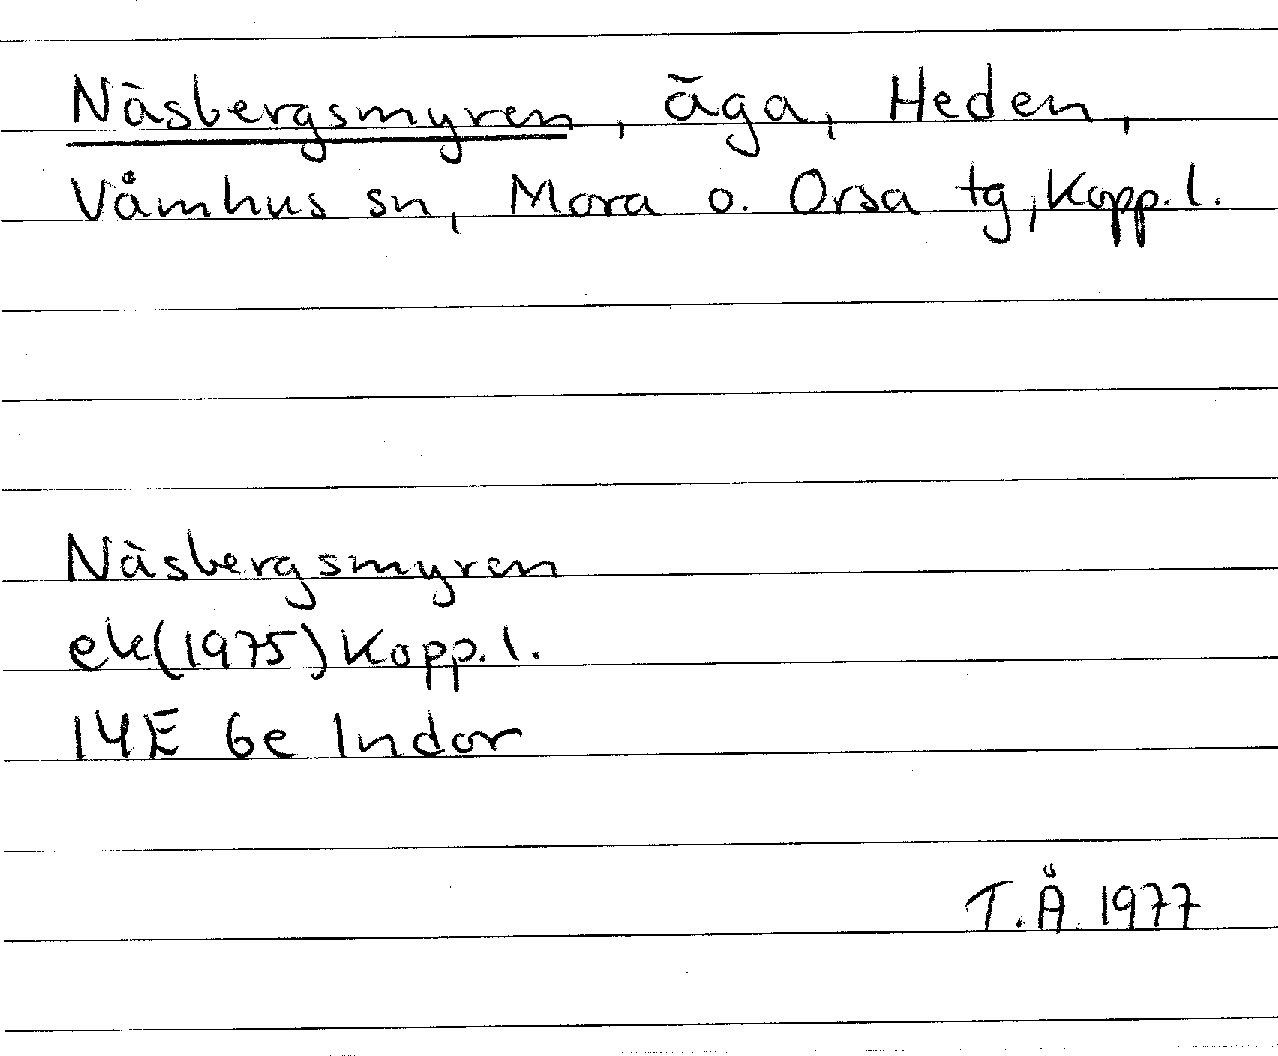 Näsbergsmyren, äga, Heden,
Våmhus sn, Mora o. Orsa tg, Kopp. l.
Näsbergsmyren
ek(1975) Kopp. l.
14E 6e Indor
T.Å. 1977